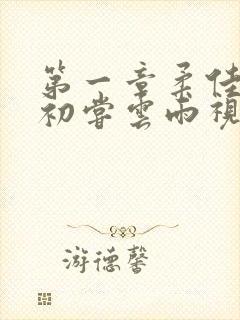 第一章柔佳
初尝云雨视
游德馨